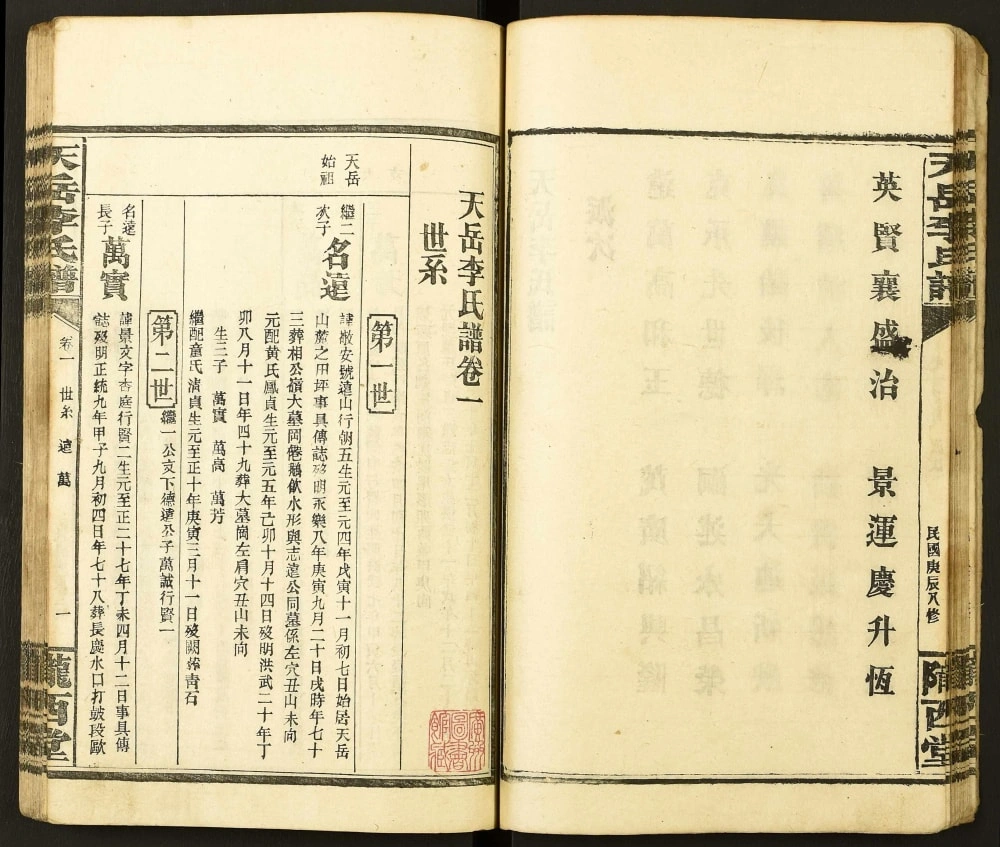 天岳李氏譜
民國庚辰八修
隴西堂
英賢襄盛治 景運慶升恆
天岳李氏譜卷一
世系
第一世
天岳
始祖
繼二
次子
名遠
諱敬安號遠山行朝五生元至元四年戊寅十一月初七日始居天岳
山麓之田坪事具傳誌歿明永樂八年庚寅九月二十日戌時年七十
三葬相公嶺大墓岡倦鵝飲水形與志遠公同墓係左穴丑山未向
元配黃氏鳳貞生元至元五年己卯十月十四日歿明洪武二十年丁
卯八月十一日年四十九葬大墓崗左肩穴丑山未向
生三子 萬實 萬高 萬芳
繼配童氏清貞生元至正十年庚寅三月十一日歿闕葬青石
第二世
繼一公文下德遠公子萬誠行賢一
名遠
長子
萬實
諱景文字杏庭行賢二生元至正二十七年丁未四月十二日事具傳
誌歿明正統九年甲子九月初四日年七十八葬長慶水口打鼓段歐
天岳李氏譜
卷一 世系 遠 萬
一
隴西堂